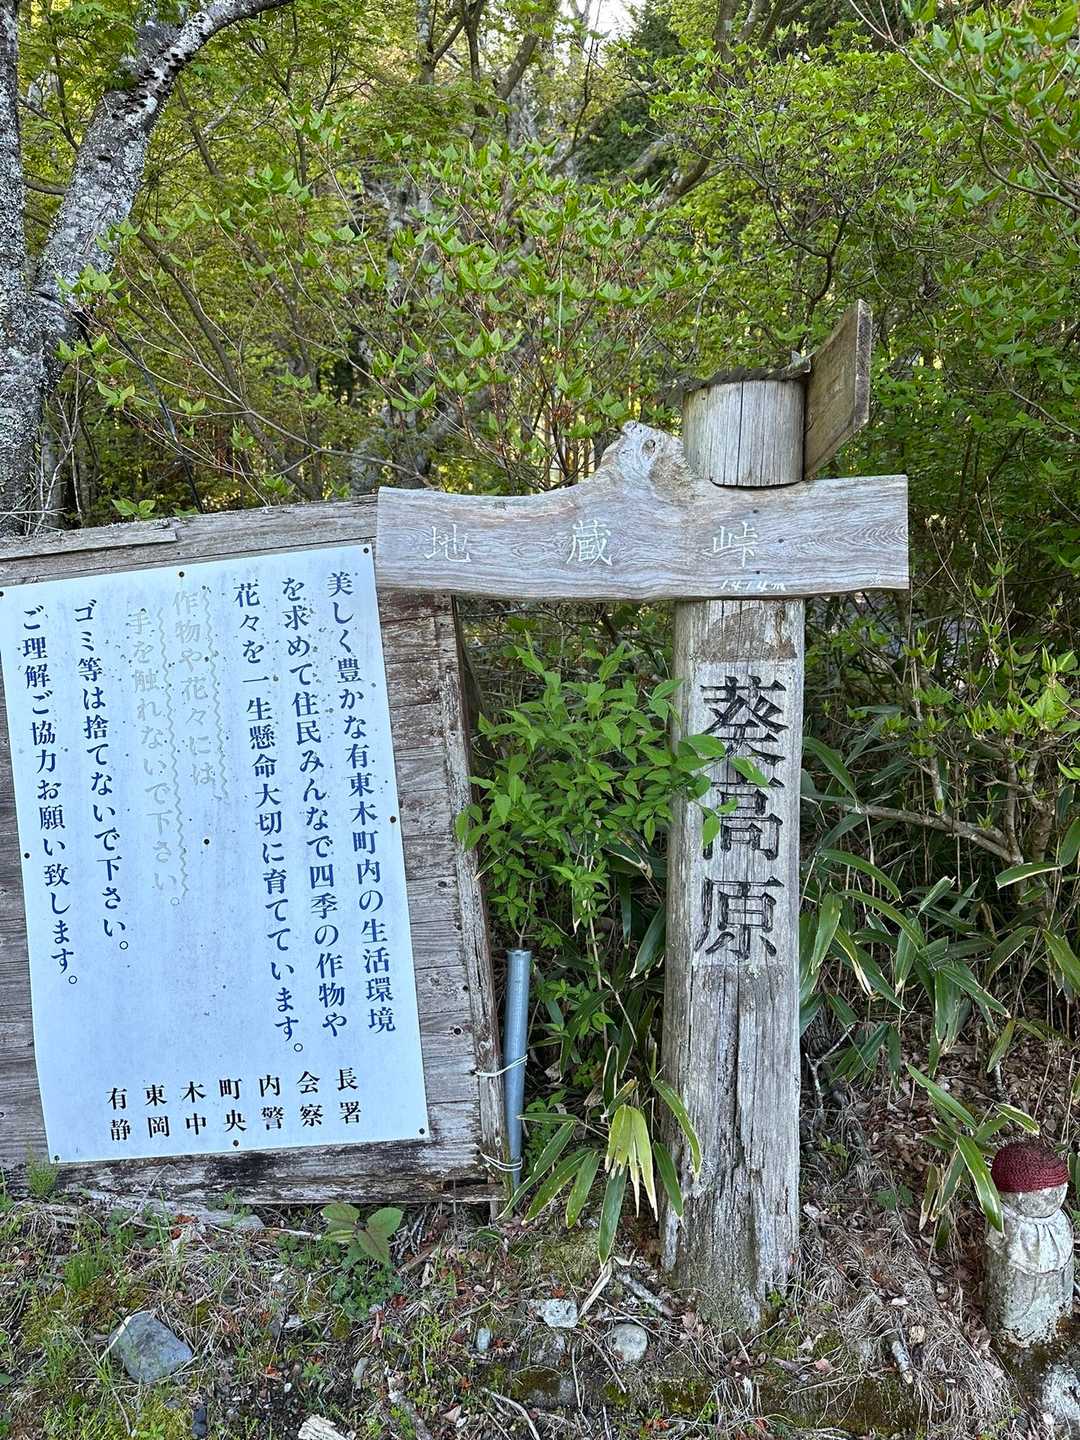 地蔵峠
1414m
葵高原
美しく豊かな有東木町内の生活環境
を求めて住民みんなで四季の作物や
花々を一生懸命大切に育てています。
作物や花々には、
手を触れないで下さい。
ゴミ等は捨てないで下さい。
ご理解ご協力お願い致します。
有東木町内会長
静岡中央警察署